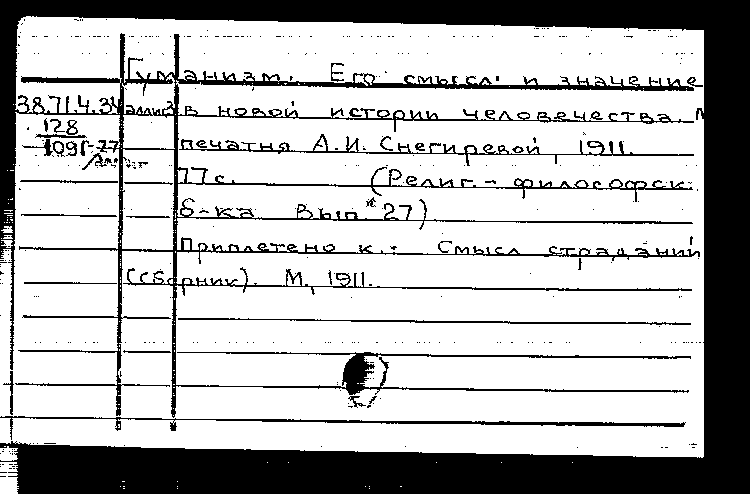 Гуманизм. Его смысл и значение
38.71.4.34 аллиг.3 в новой истории человечества. М
128
1091-27
аллиг
печатня А.И. Снегиревой, 1911.
77с. (Религ.-философск.
б-ка Вып. 27)
Приплетено к.: Смысл страданий
(сборник). М., 1911.